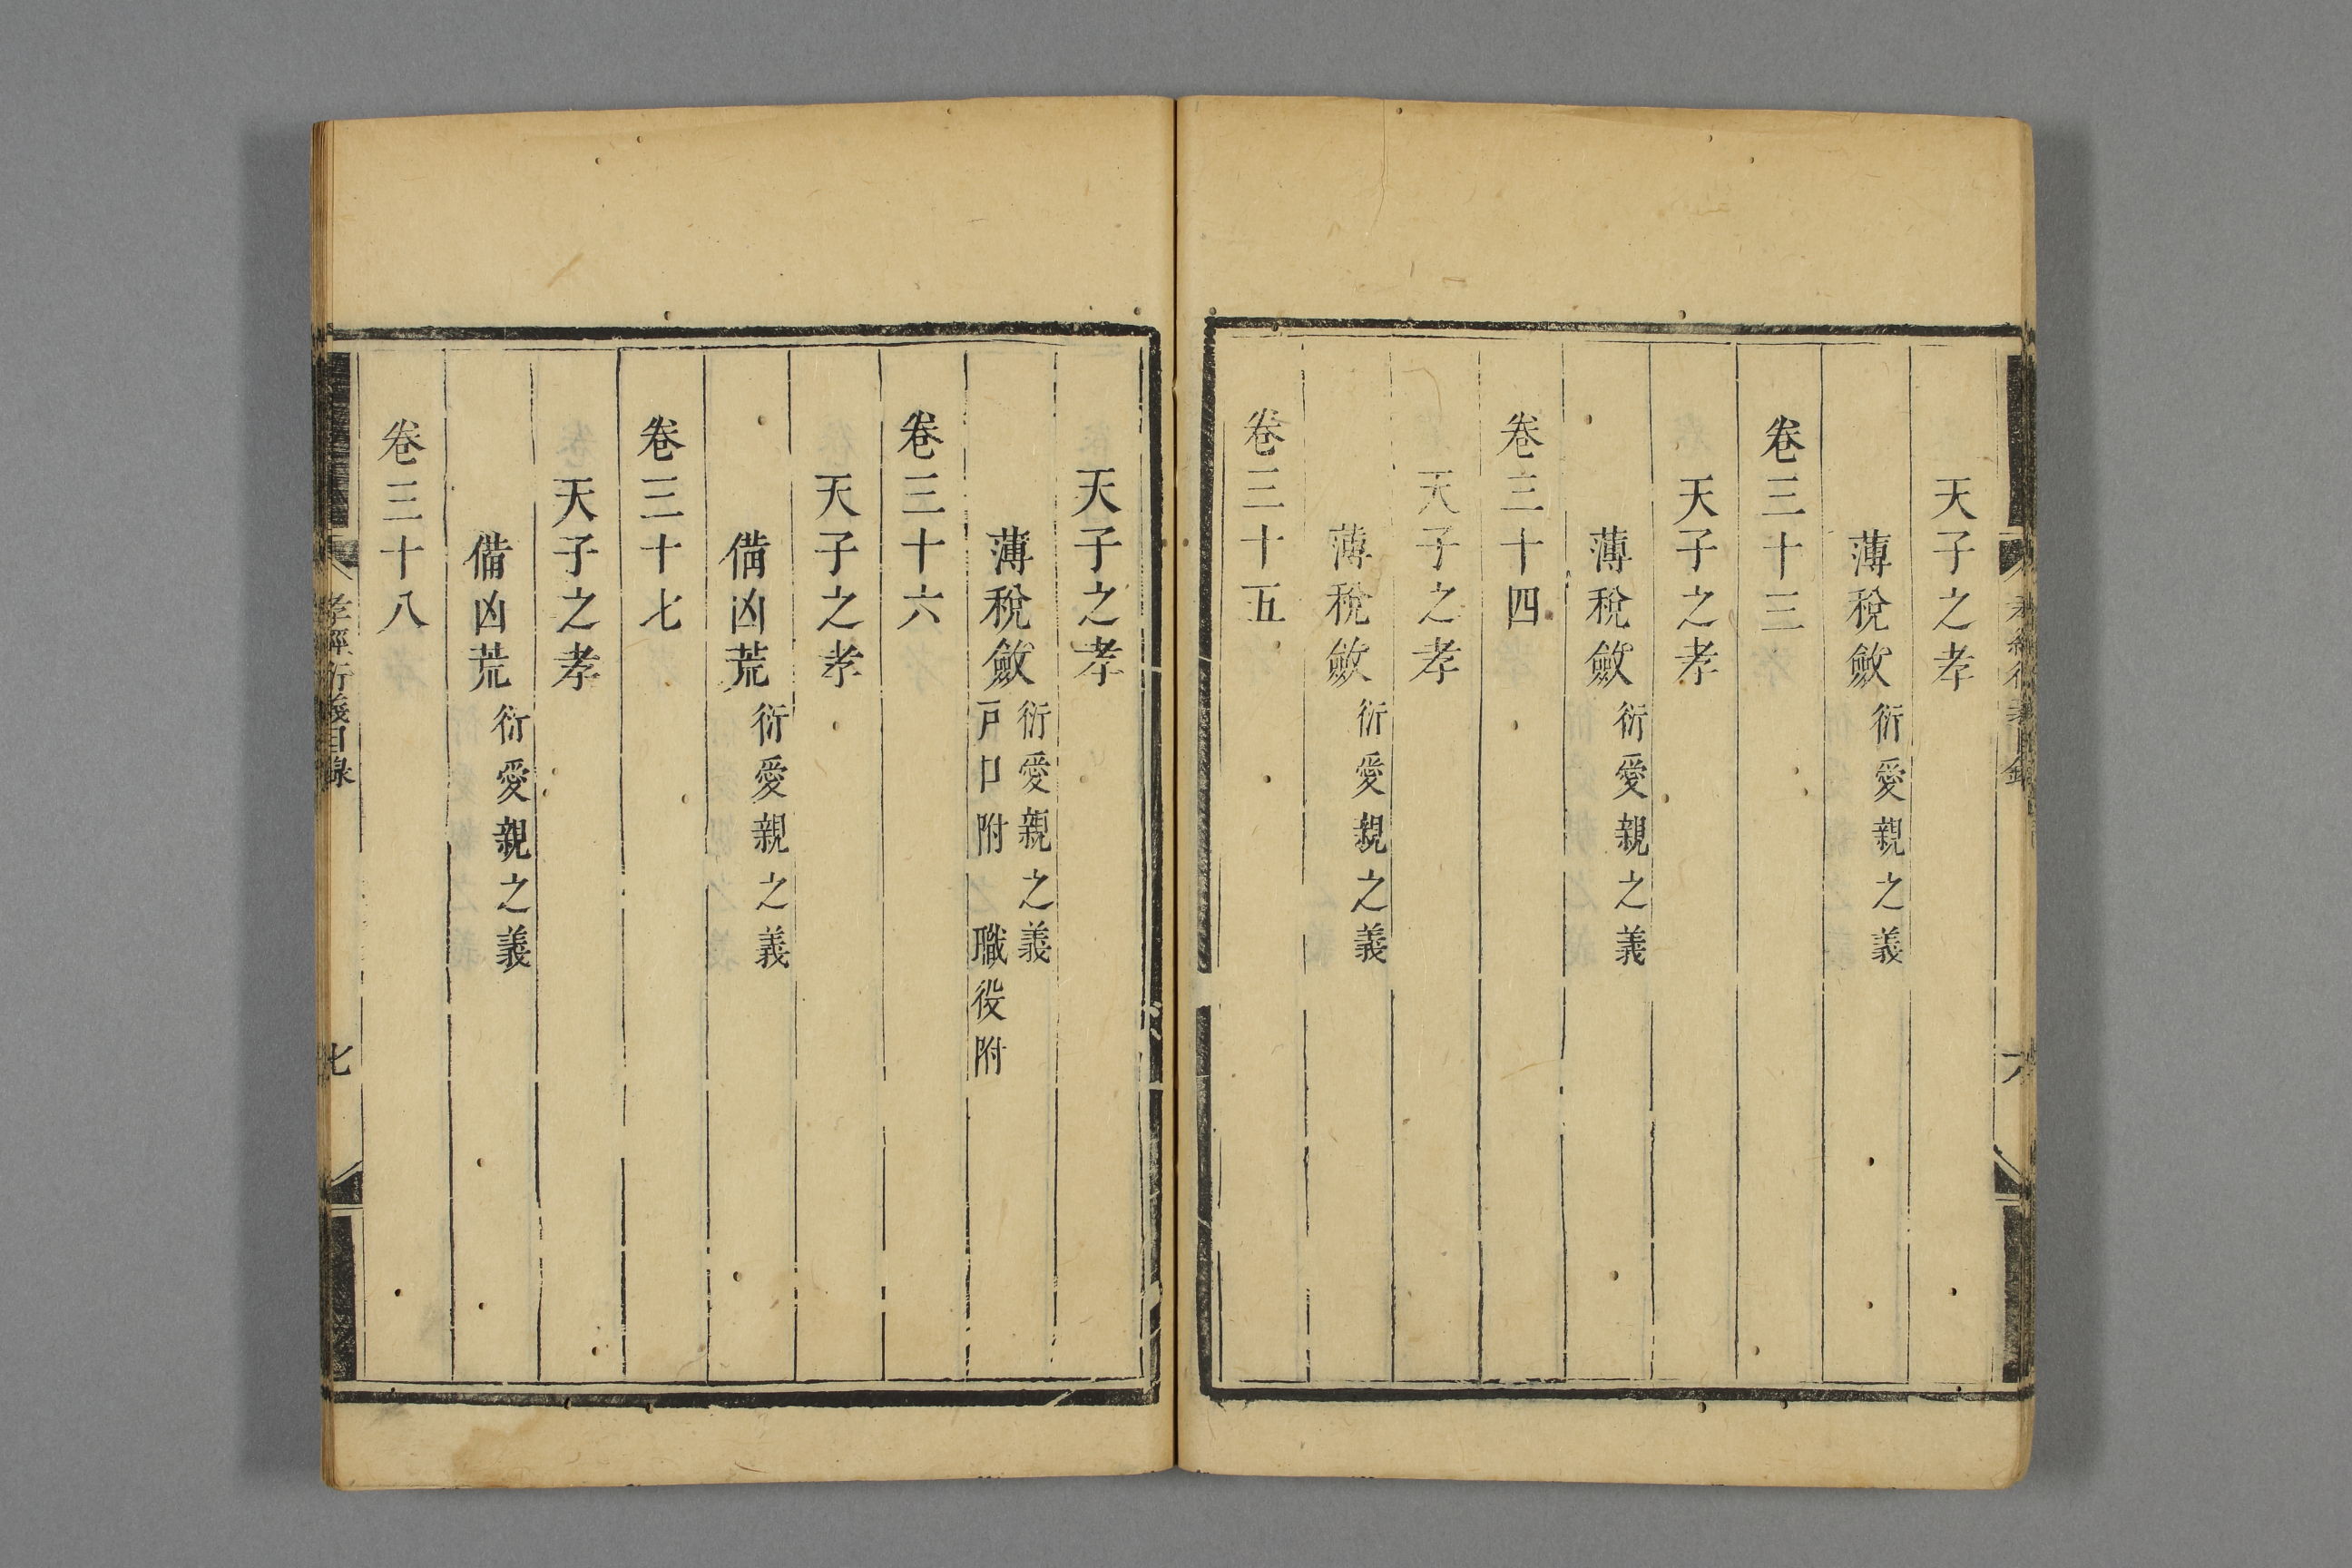 天子之孝
薄稅斂衍愛親之義
卷三十三
天子之孝
薄稅斂衍愛親之義
卷三十四
天子之孝
薄稅斂衍愛親之義
卷三十五
天子之孝
薄稅斂衍愛親之義
戸口附 職役附
卷三十六
天子之孝
備凶荒衍愛親之義
卷三十七
天子之孝
備凶荒衍愛親之義
卷三十八
孝經衍義目錄
七